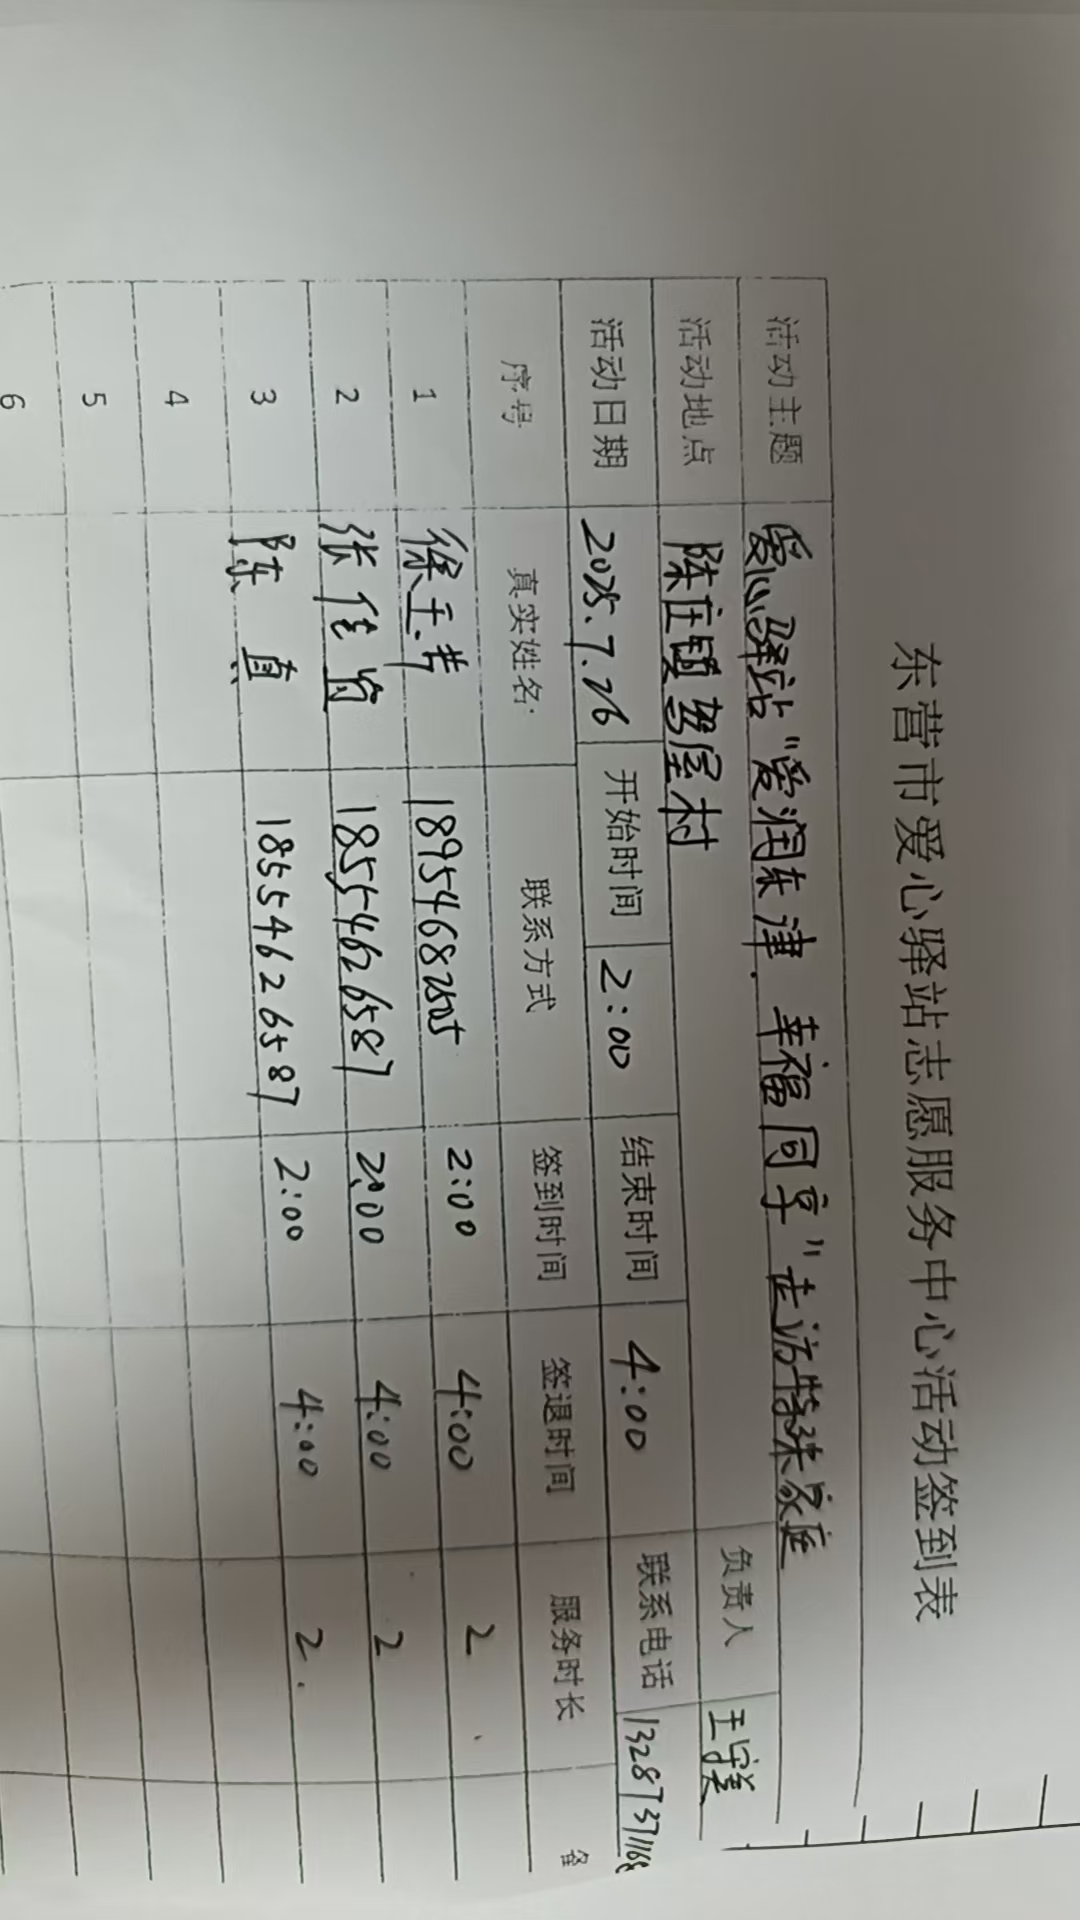 东营市爱心驿站志愿服务中心活动签到表
活动主题 爱心驿站“爱润东津 幸福同享”走访特殊家庭
活动地点 陈庄镇 村 负责人 王
活动日期 2025.7.26 开始时间 2:00 结束时间 4:00 联系电话 13287371168
序号 真实姓名 联系方式 签到时间 签退时间 服务时长 备
1 徐 18954682505 2:00 4:00 2
2 张佳 18554626587 2:00 4:00 2
3 陈真 18554626587 2:00 4:00 2.
4
5
6